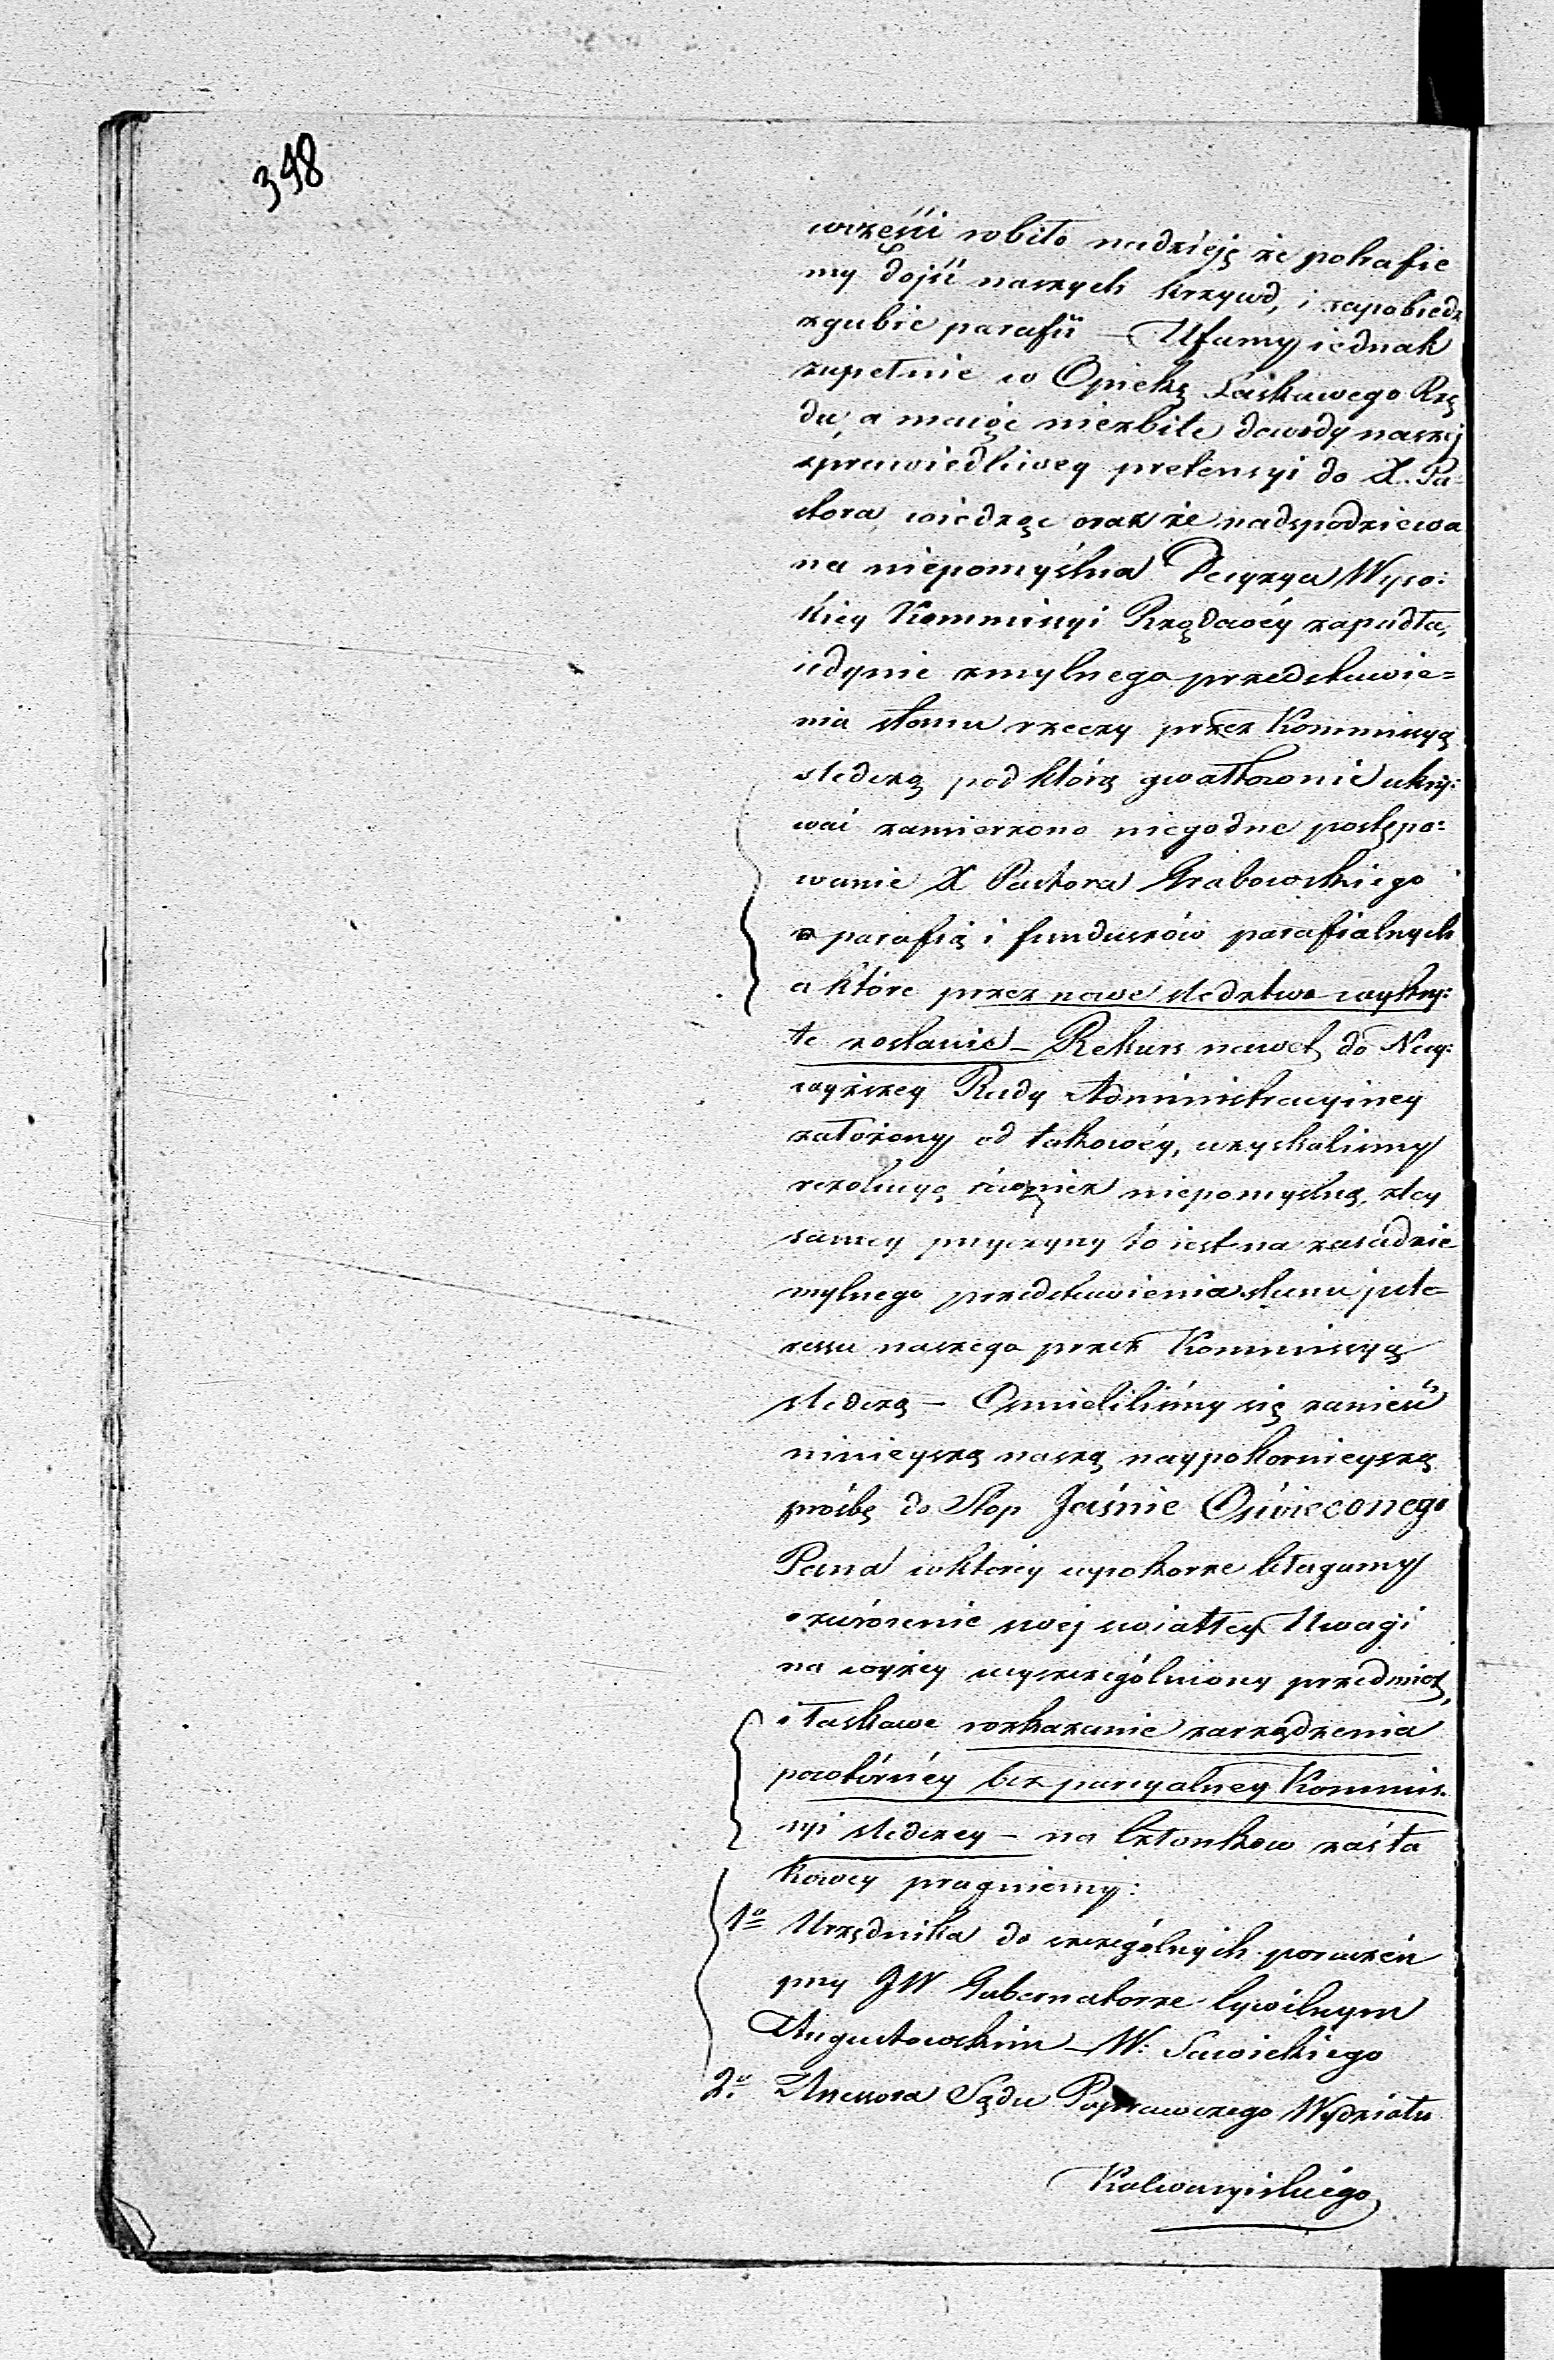 348
części robiło nadzieję że potrafie
my dojść naszych krzywd, i zapobiedz
zgubie parafii – Ufamy iednak
zupełnie w Opiekę Łaskawego Rzą
du, a maiąc niezbite dowody naszej
sprawiedliwey pretensyi do X. Pa=
stora, wiedząc oraz że nadspodziewa
na niepomyślna Decyzya Wyso:
kiey Kommissyi Rządowéy zapadła,
iedynie zmylnego przedstawie=
nia stanu rzeczy przez Kommissyą
sledczą pod którą gwałtownie ukry:
wać zamierzono niegodne postępo=
wanie X Pastora Grabowskiego
z parafią i funduszów parafialnych
a które przez nowe sledztwo wykry:
te zostanie – Rekurs nawet do Nay:
wyższey Rady Administracyiney
założony od takowéy, uzyskalismy
rezolucyą również niepomyslną, ztey
samey przyczyny to iest na zasadzie
mylnego przedstawienia stanu jnte-
ressu naszego przez Kommissyą
sledczą – Osmieliliśmy się zanieść
ninieyszą naszą naypokornieyszą
prośbę do Stop Jaśnie Oświeconego
Pana wktórey wpokorze błagamy
o zwrócenie swej swiatłey Uwagi
na wyżey wyszczególniony przedmiot,
i łaskawe rozkazanie zarządzenia
powtórnéy bezparcyalney Kommis.
syi sledczey – na Członkow zaś ta
kowey pragniemy:
1o Urzędnika do szczególnych poruczeń
przy JW Gubernatorze Cywilnym
Augustowskim – W: Sawickiego
2o. Assessora Sądu Poprawczego Wydziału
Kalwaryiskiego